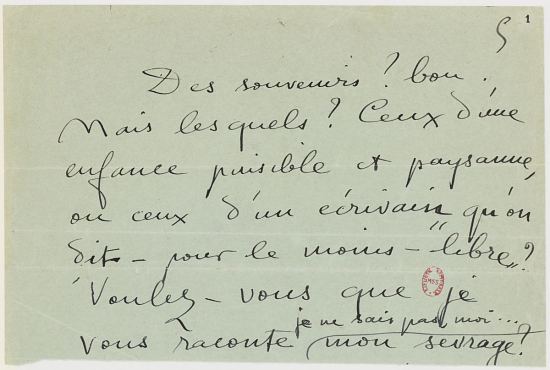 1
5
Des souvenirs ? bon.
Mais lesquels ? Ceux d'une
enfance paisible et paysanne,
ou ceux d'un écrivain qu'on
dit – pour le moins – "libre" ?
Voulez-vous que je
je ne sais pas, moi...
vous raconte mon sevrage ?